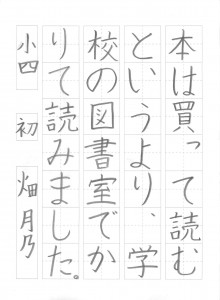 本は買って読む
というより、学
校の図書室でか
りて読みました。
小四 初 畑月乃